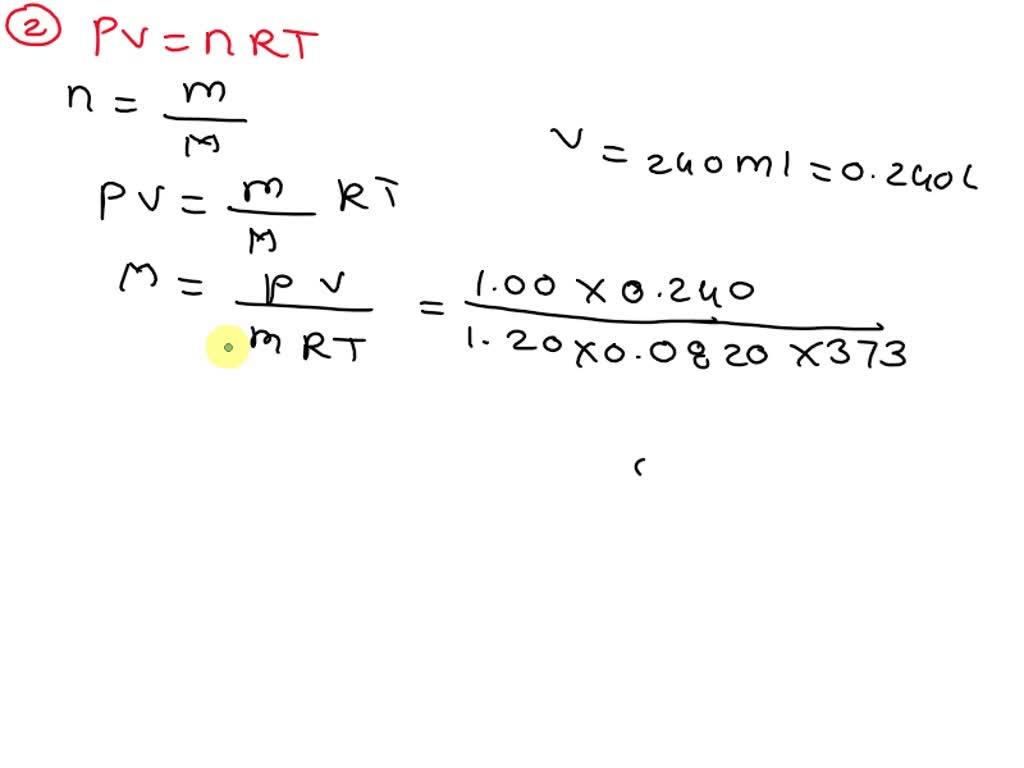 ② PV = nRT
n = m / M
V = 240 ml = 0.240 L
PV = m / M RT
M = PV / mRT = 1.00 × 0.240 / 1.20 × 0.0820 × 373
(